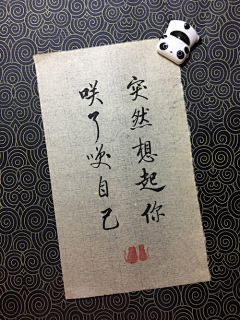 突然想起你
咲了咲自己